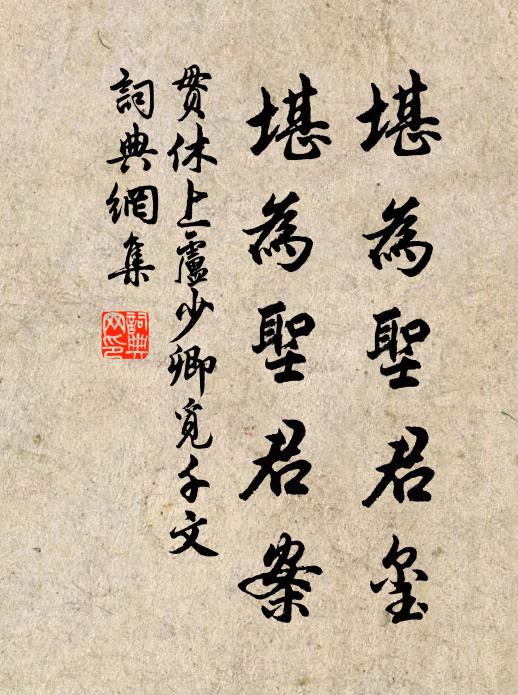 堪為聖君璽
堪為聖君案
貫休上盧少卿覓千文
詞典網集
詞典網印